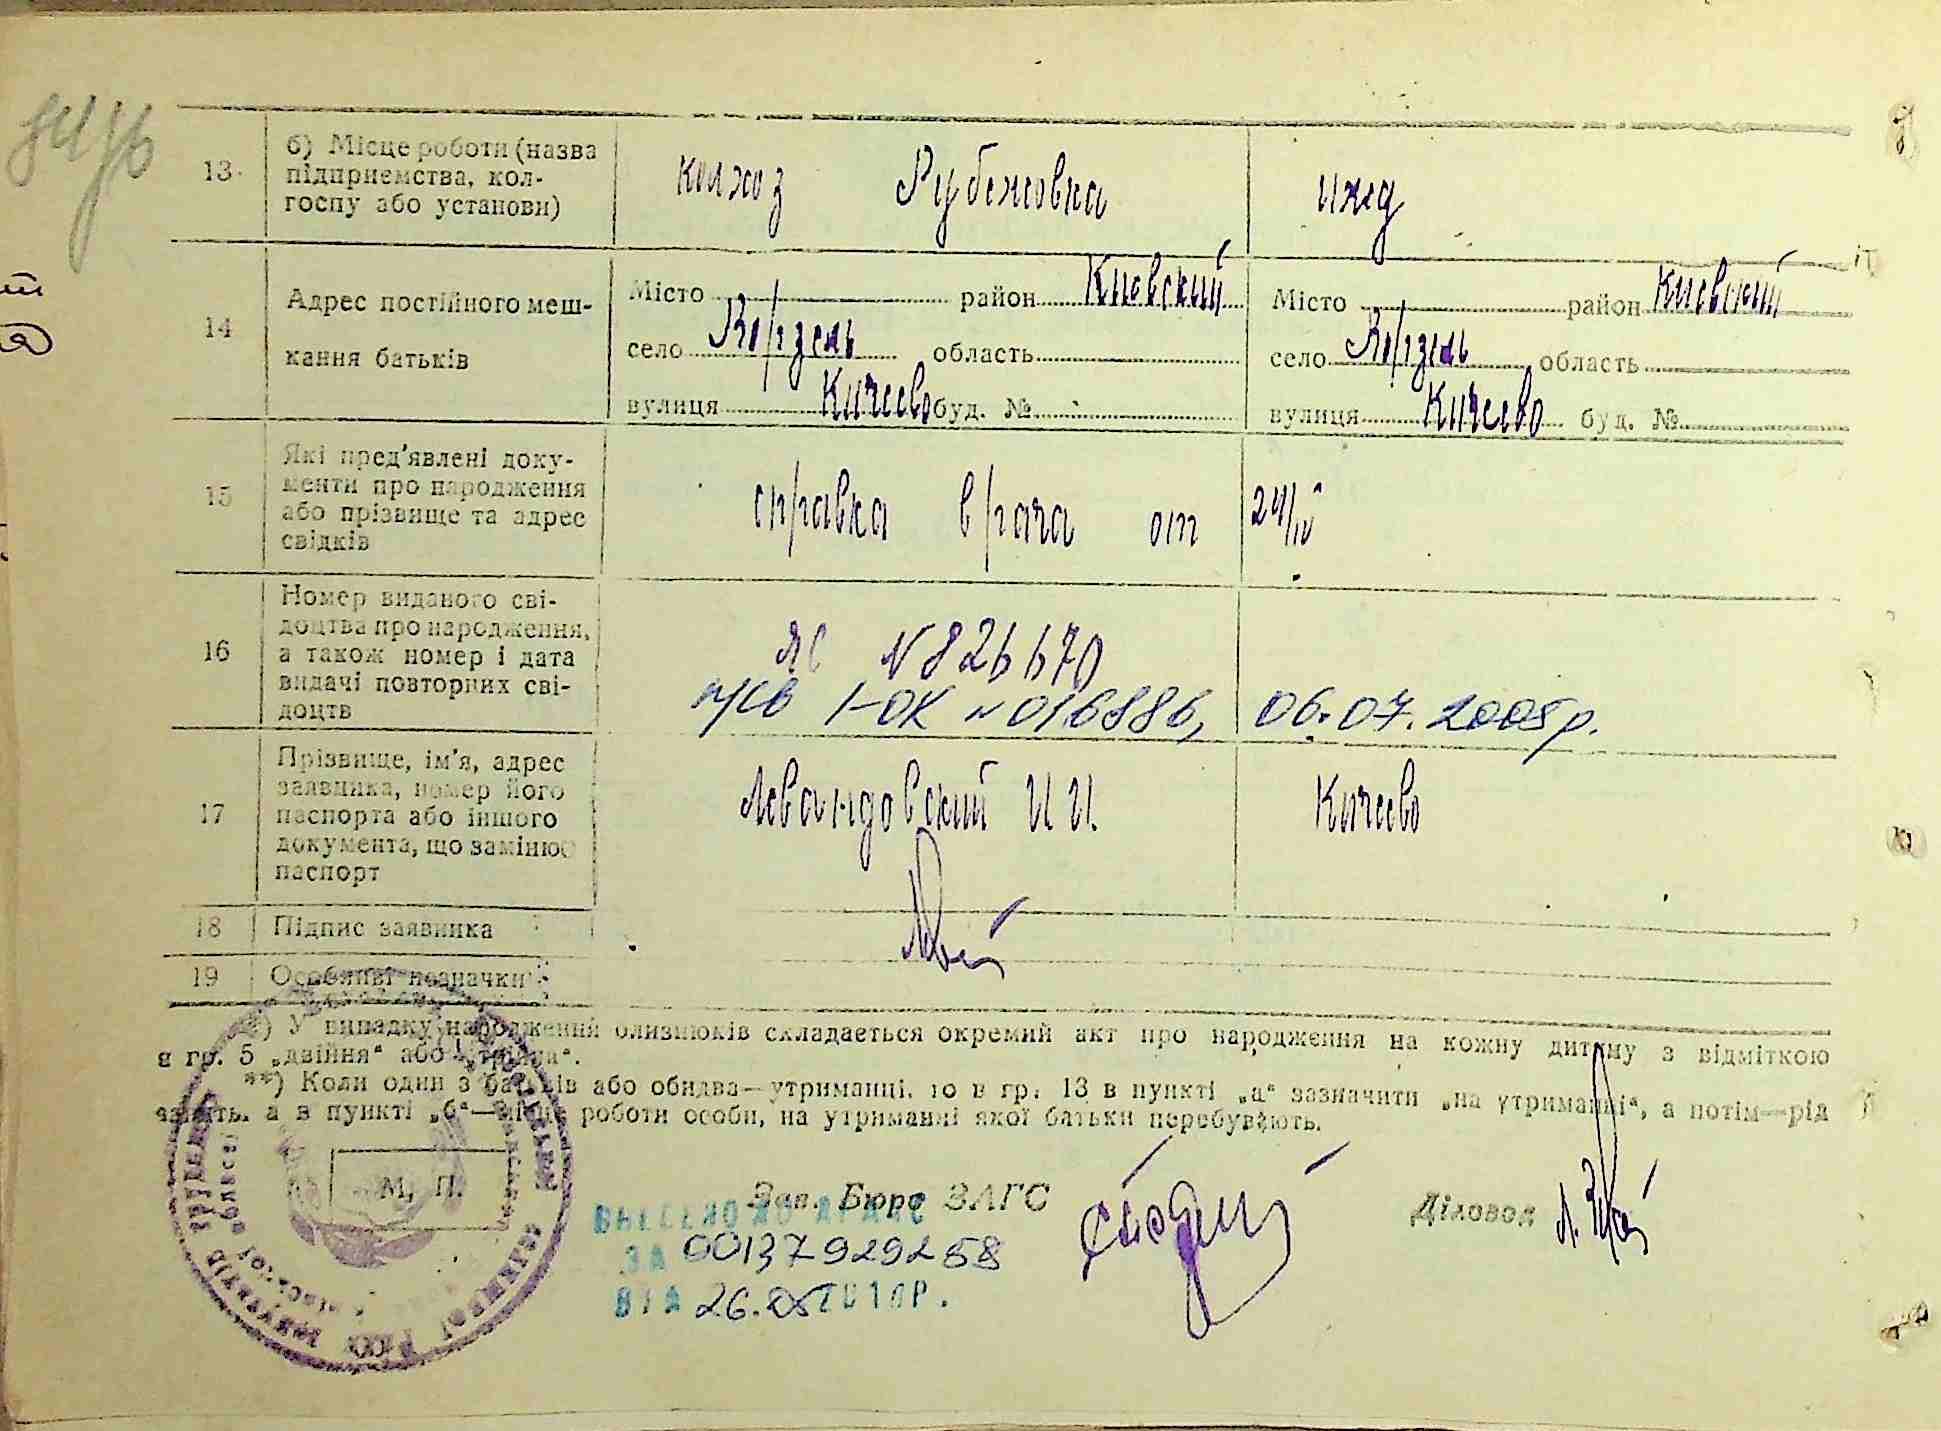 13
б) Місце роботи (назва
підприємства, кол-
госпу або установи)
колхоз Рубежовка
ижд
14
Адрес постійного меш-
кання батьків
Місто район Киевский
село Ворзель область
вулиця Кичеево буд. №
Місто район Киевский
село Ворзель область
вулиця Кичеево буд. №
15
Які пред'явлені доку-
менти про народження
або прізвище та адрес
свідків
справка врача от 24/IV
16
Номер виданого сві-
доцтва про народження,
а також номер і дата
видачі повторних сві-
доцтв
ЯС N 826670
I-ОК N 016886, 06.07.2005р.
17
Прізвище, ім'я, адрес
заявника, номер його
паспорта або іншого
документа, що замінює
паспорт
Левандовский И И.
Кичеево
18
Підпис заявника
19
Особливі позначки
*) У випадку народження близнюків складається окремий акт про народження на кожну дитину з відміткою
в гр. 5 „двійня“ або „трійня“.
**) Коли один з батьків або обидва—утриманці, то в гр. 13 в пункті „а“ зазначити „на утриманні“, а потім—рід
занять, а в пункті „б“—місце роботи особи, на утриманні якої батьки перебувають.
М. П.
Зав. Бюро ЗАГС
Діловод
ВНЕСЕНО ДО ДРАЦС
ЗА 00137929258
ВІД 26.05.2010Р.